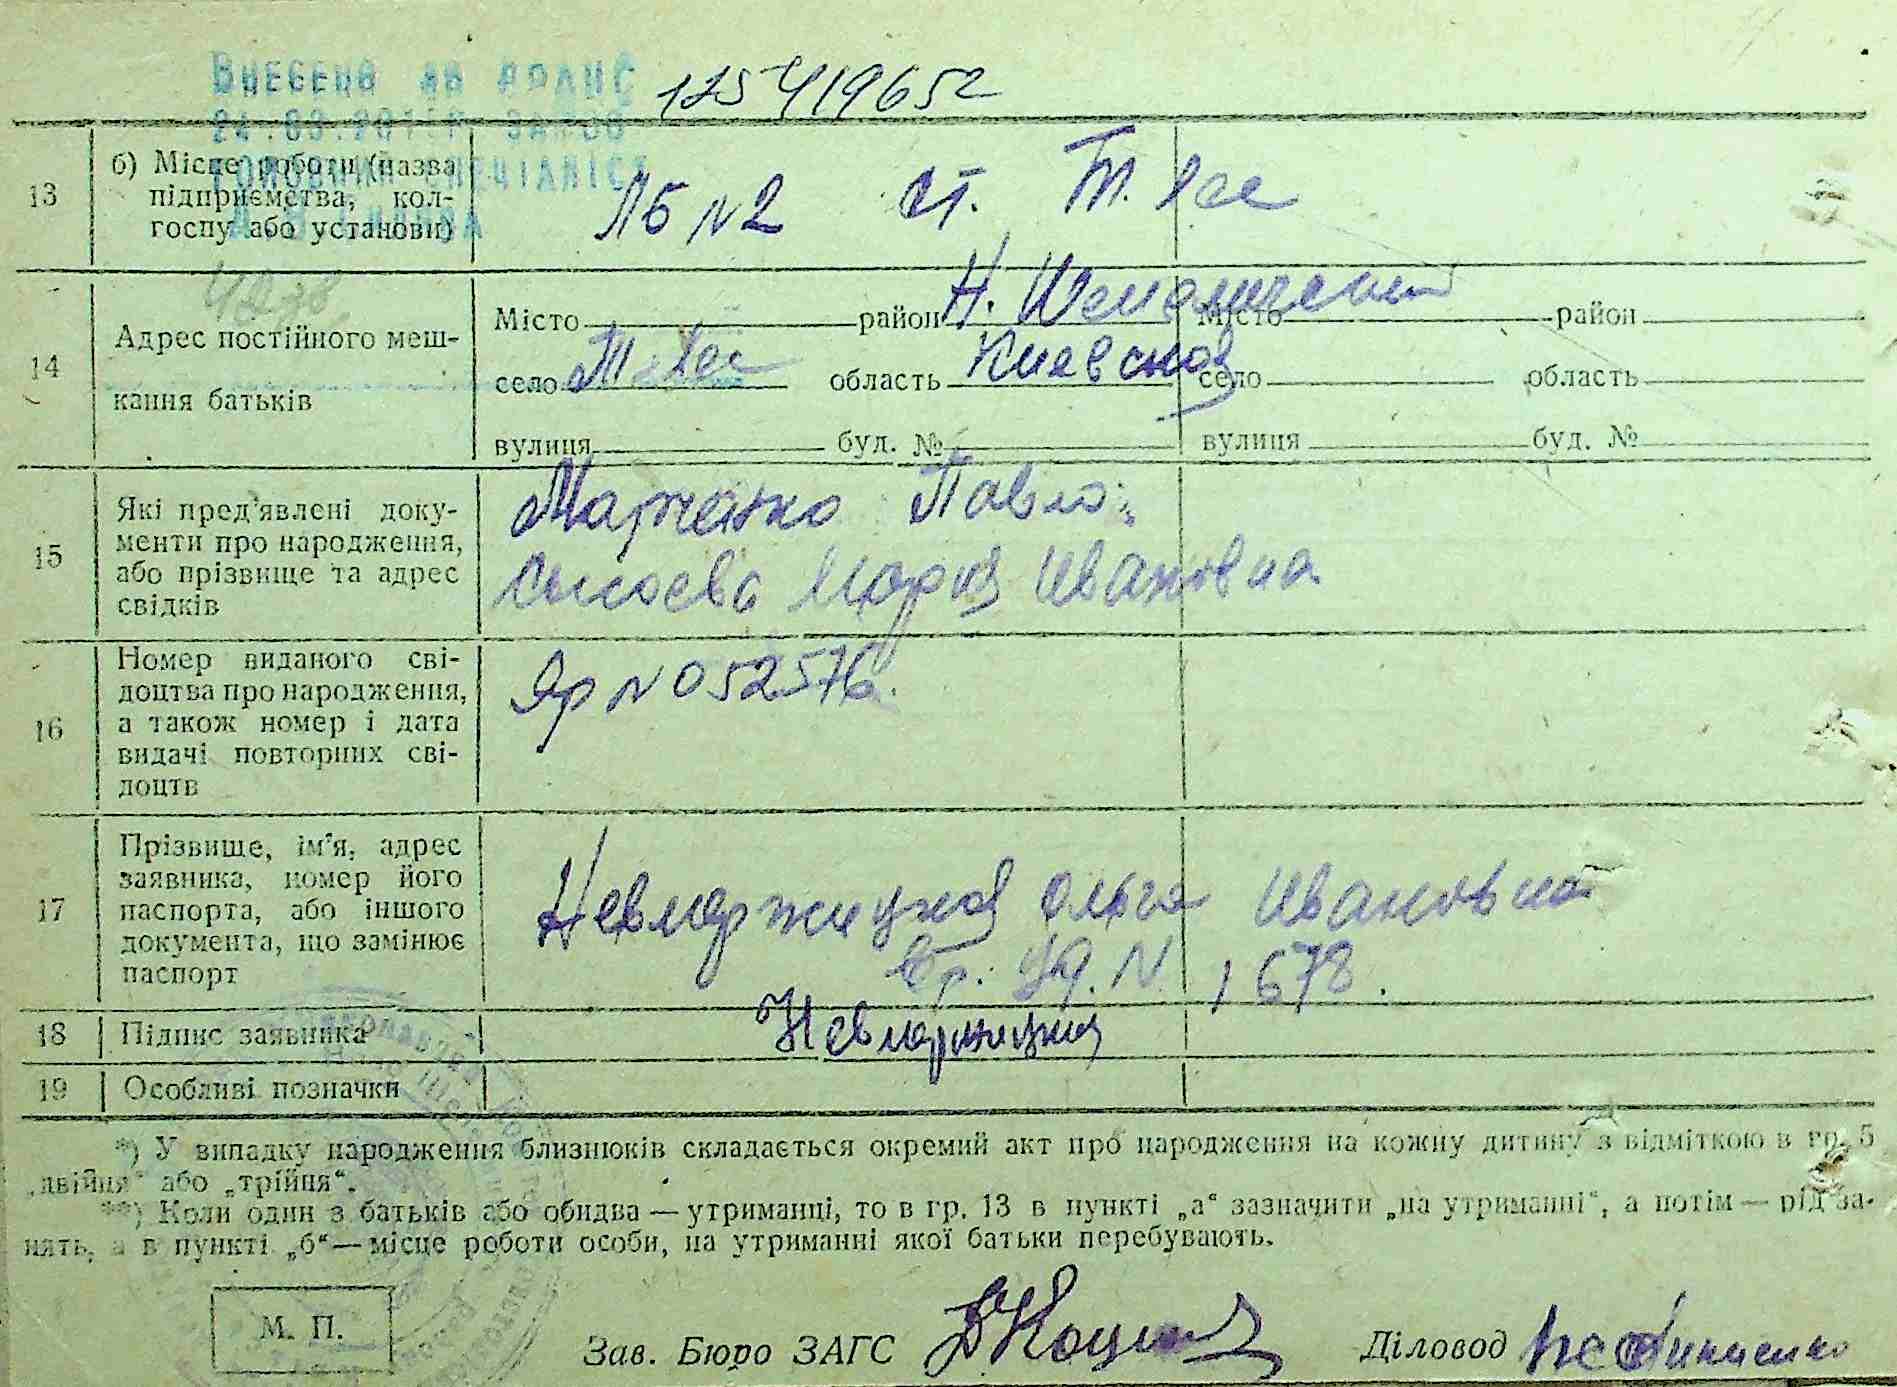 Внесено до ДРАЦС
125419652
13
б) Місце роботи (назва
підприємства, кол-
госпу або установи)
ЛБ N2 ст. Т. Лес
14
Адрес постійного меш-
кання батьків
Місто район Н. Шепеличский
село Т. Лес область Киевской
вулиця буд. №
Місто район
село область
вулиця буд. №
15
Які пред'явлені доку-
менти про народження,
або прізвище та адрес
свідків
Марченко Павло
Сысоева Мария Ивановна
16
Номер виданого сві-
доцтва про народження,
а також номер і дата
видачі повторних сві-
доцтв
Яр N 052576.
17
Прізвище, ім'я, адрес
заявника, номер його
паспорта, або іншого
документа, що замінює
паспорт
Невмержицкая Ольга Ивановна
Вр. уд. N 1678.
18
Підпис заявника
Невмержицкая
19
Особливі позначки
*) У випадку народження близнюків складається окремий акт про народження на кожну дитину з відміткою в гр. 5
„двійня“ або „трійня“.
**) Коли один з батьків або обидва — утриманці, то в гр. 13 в пункті „а“ зазначити „на утриманні“, а потім — рід за-
нять, а в пункті „б“ — місце роботи особи, на утриманні якої батьки перебувають.
М. П.
Зав. Бюро ЗАГС
Діловод